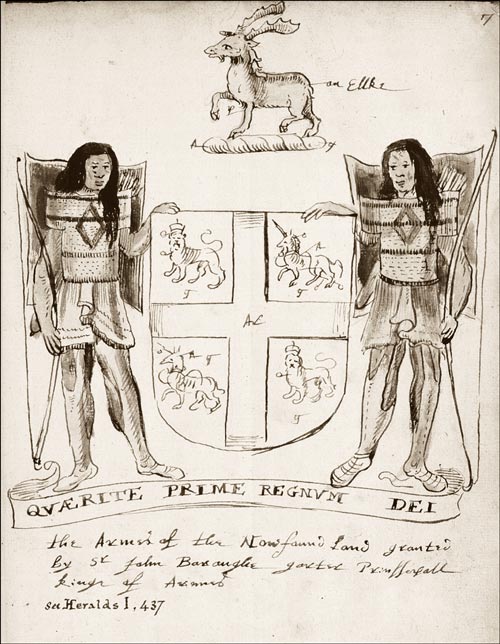 an Ellke
A
QVÆRITE PRIME REGNVM DEI
the Armes of the Nowfound Land granted
by Sr John Baraughe garter Prinsserpall
kinge of Armes
see Heralds I, 437